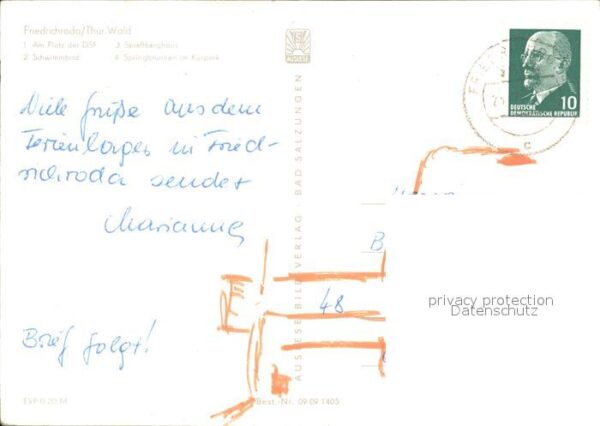 Friedrichroda/Thür. Wald
1 Am Platz der DSF 3 Spießberghaus
2 Schwimmbad 4 Springbrunnen im Kurpark
Viele Grüße aus dem
Ferienlager in Fried-
richroda sendet
Marianne
Brief folgt!
EVP 0,20 M
AUSLESE-BILD-VERLAG · BAD SALZUNGEN
Best.-Nr. 09 09 1405
DEUTSCHE
DEMOKRATISCHE REPUBLIK
10
FRIED
c
B
48
privacy protection
Datenschutz